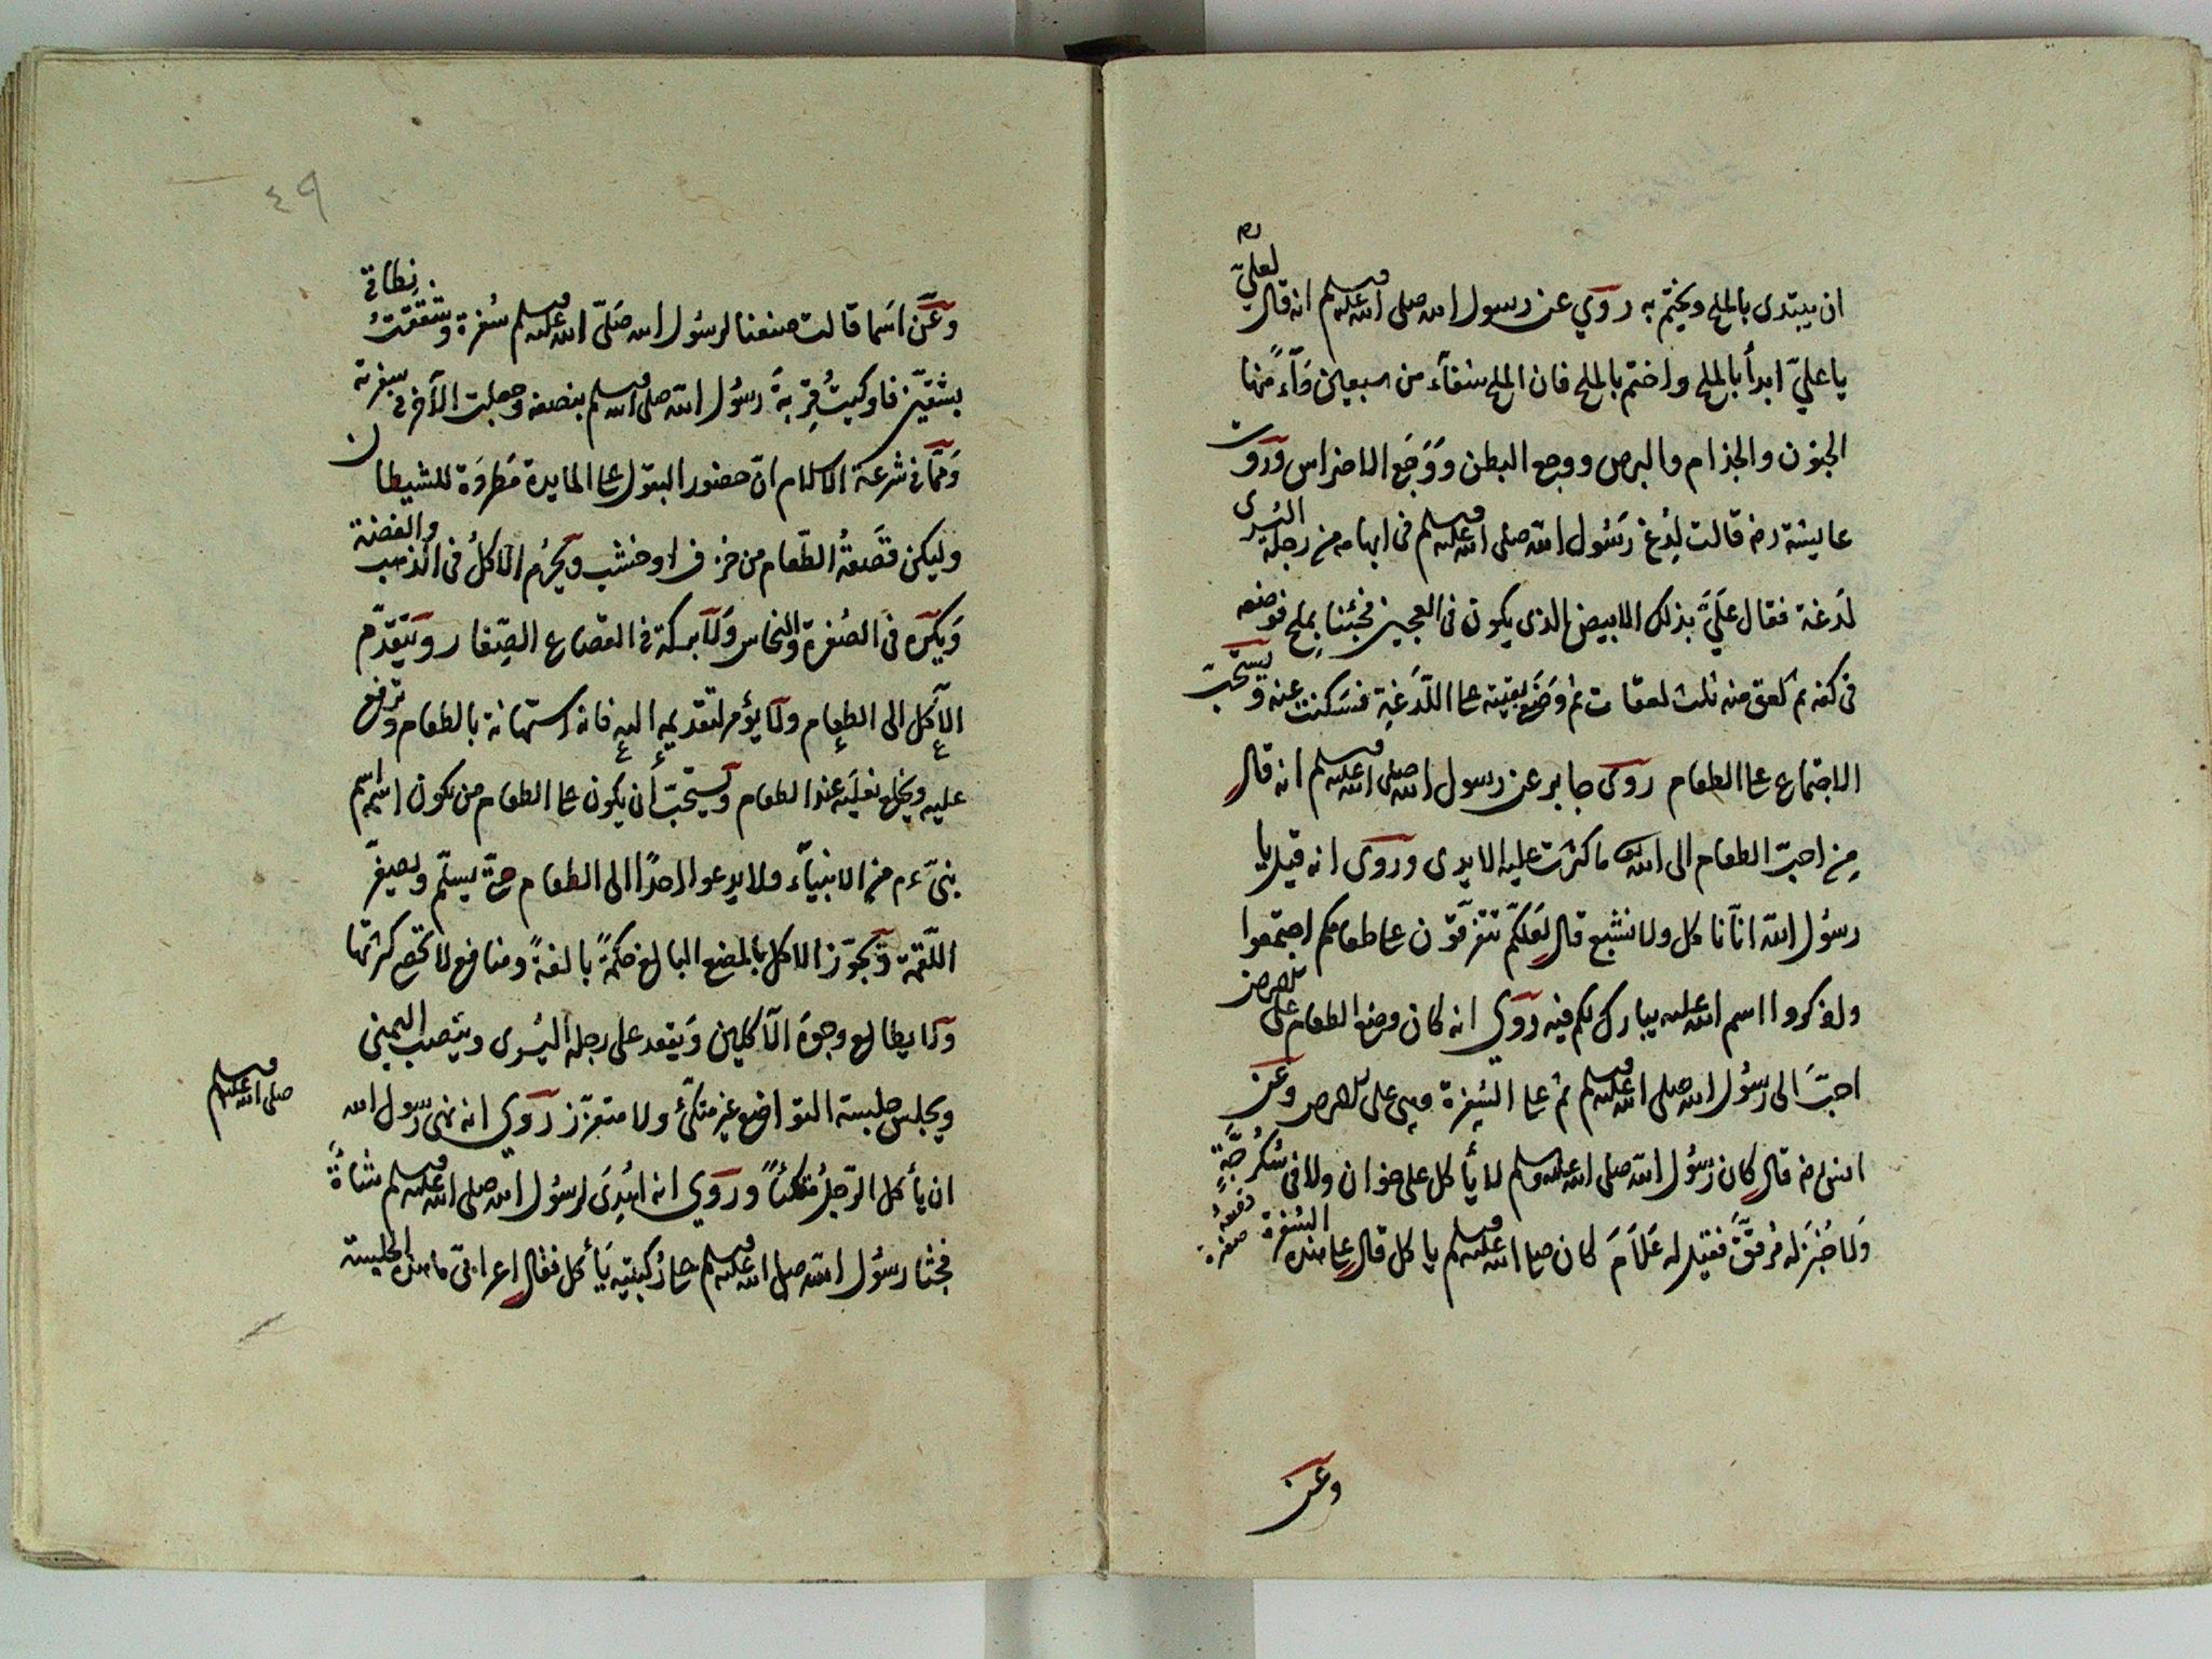 ان يبتدى بالملح ويختم به روي عن رسول الله صلى الله عليه وسلم انه قال لعليّ رم
يا عليّ ابدأ بالملح واختم بالملح فان الملح شفآء من سبعين دآء منها
الجنون والجذام والبرص ووجع البطن وَوَجَع الاضراس وروت
عايشة رضه قالت لُدِغ رَسُول الله صلى الله عليه وسلم فى ابهامه من رجله اليُسرى
لَدغة فقال عَلَيَّ بذلك الابيض الذى يكون فى العجين فجئنا بملح فوضعه
فى كفه ثم لعق منه ثلث لعقات ثم وَضَع بقيته على اللَّدغةِ فسَكنت عنه ويستحبّ
الاجتماع على الطعام روى جابر عن رسول الله صلى الله عليه وسلم انه قال
مِن احبّ الطعام الى الله تع ما كثرت عليه الايدى وروى انه قيل يا
رسُول الله انّا نأكل ولا نشبع قال لعَلكّم تتفرّقون على طعامكم اجتمعوا
واذكروا اسم الله عليه يبارك لكم فيه روي انه كان وضع الطعام على الارض
احبَّ الى رسُول الله صلى الله عليه وسلم ثم على السُفرة وهى على الارض وعن
انس رضه قال كان رَسُول الله صلى الله عليه وسلم لا يأكل على خوان ولا فى سُكُرجَّةٍ
وَلا خُبزَ له مُرقَّقٌ فقيل له عَلَامَ كان صلى الله عليه وسلم يأكل قال على هذه السُفرة
قصعة صغيرة
وعن
٤٩
وعَن اَسما قالت صنعنا لرسُول الله صَلّى الله عليه وسلم سُفرة وشققتُ نِطاقى
بشقّين فاوكيتُ قِربةَ رسُول الله صلى الله عليه وسلم بنصفه وجعلت الآخر فى سفرته
وَممّا فى شرعة الاسلام انّ حضور البقول على المايدة مَطردَة للشيطان
وليكن قَصَعةُ الطّعام من خزف او خشب ويحرُم الاكلُ فى الذهب والفضة
وَيكرَه فى الصُفرة والنحاس وَلا بركة فى القصاع الصِّغار ويَتقدّم
الآكل الى الطعام ولا يؤمر بتقديمه اليه فانه استهانة بالطعام وترفع
عليه ويخلع نعليَه عند الطعام ويستحبّ أن يكون على الطعام من يكون اسمه اسم
نبىّ ءم من الانبيآء ولا يدعو احدًا الى الطعام حتّى يسلّم ويصغّر
اللّقمة ويجوّز الاكل بالمضغ البالغ حكمةً بالغةً ومنافع لا تحصى كثرتها
ولا يطالع وجوهَ الآكلين وَيقعد على رجله اليُسرى وينصب اليمنى
ويجلس جلسة التواضع غير متكئ ولا متعزّز روي انه نهى رسول الله
صلى الله عليه وسلم
ان يأكل الرّجلُ متكئاً وروي انه اُهدِىَ لرسُول الله صلى الله عليه وسلم شاةٌ
فجثا رسُول الله صلى الله عليه وسلم على رُكبتَيه يَأكل فقال اعرابىّ ما هذه الجلسة